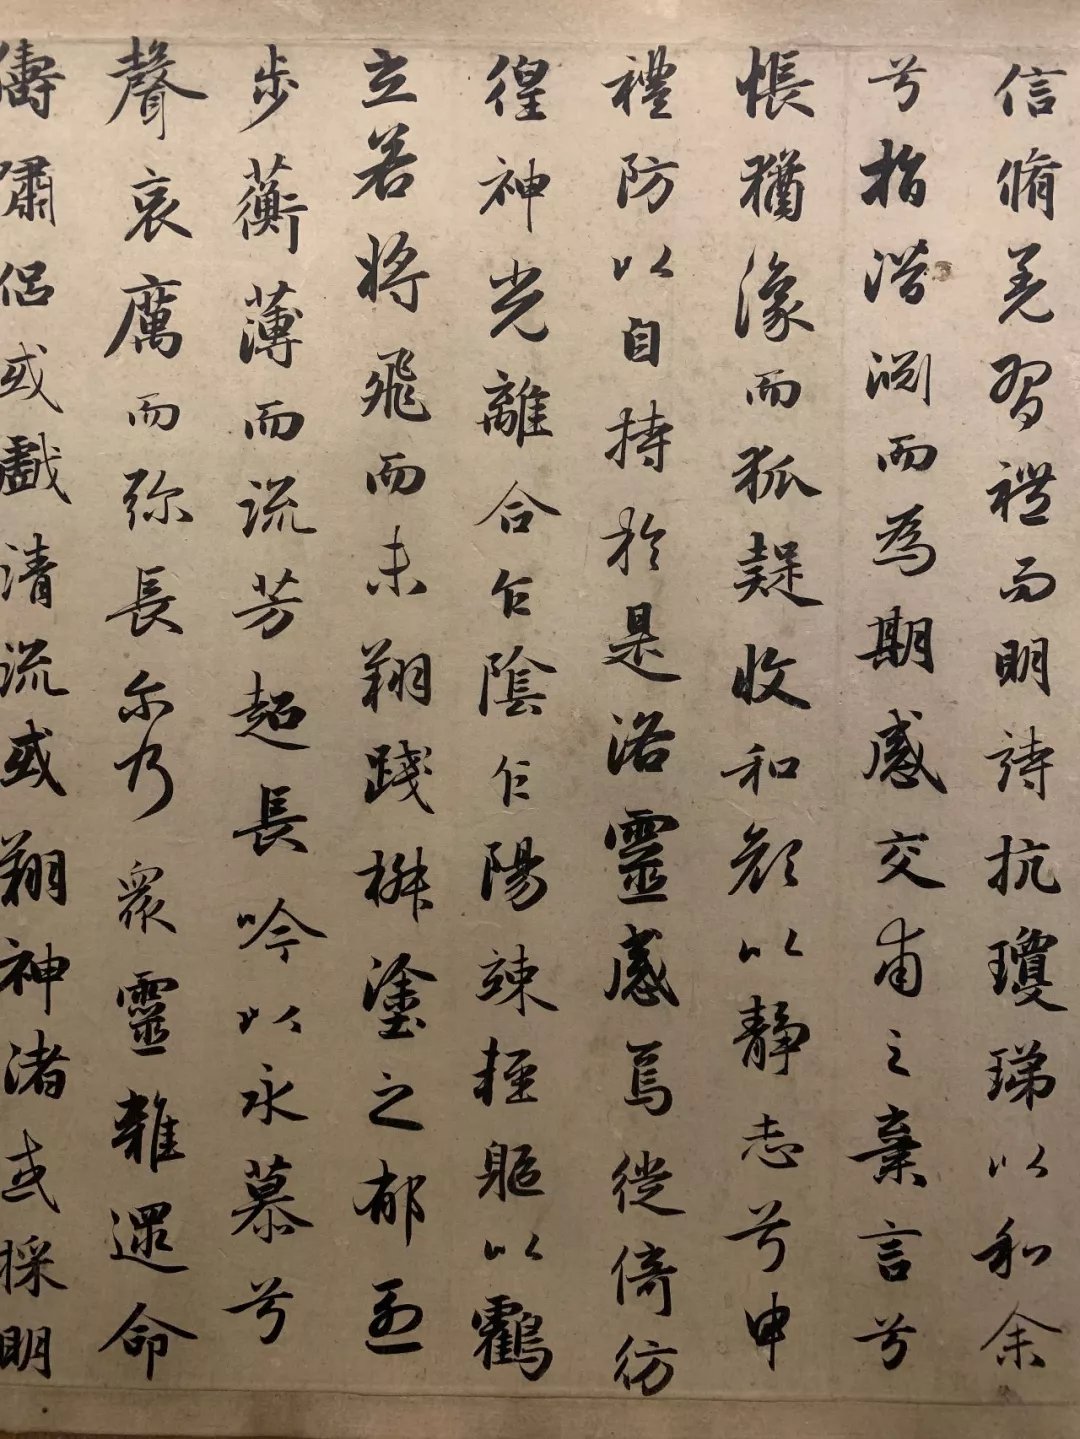 信脩羌習禮而明詩抗瓊珶以和余
兮指潛淵而為期感交甫之棄言兮
悵猶豫而狐疑收和顏以靜志兮申
禮防以自持於是洛靈感焉徙倚彷
徨神光離合乍陰乍陽竦輕軀以鶴
立若將飛而未翔踐椒塗之郁烈
步蘅薄而流芳超長吟以永慕兮
聲哀厲而彌長爾乃眾靈雜遝命
儔嘯侶或戲清流或翔神渚或採明